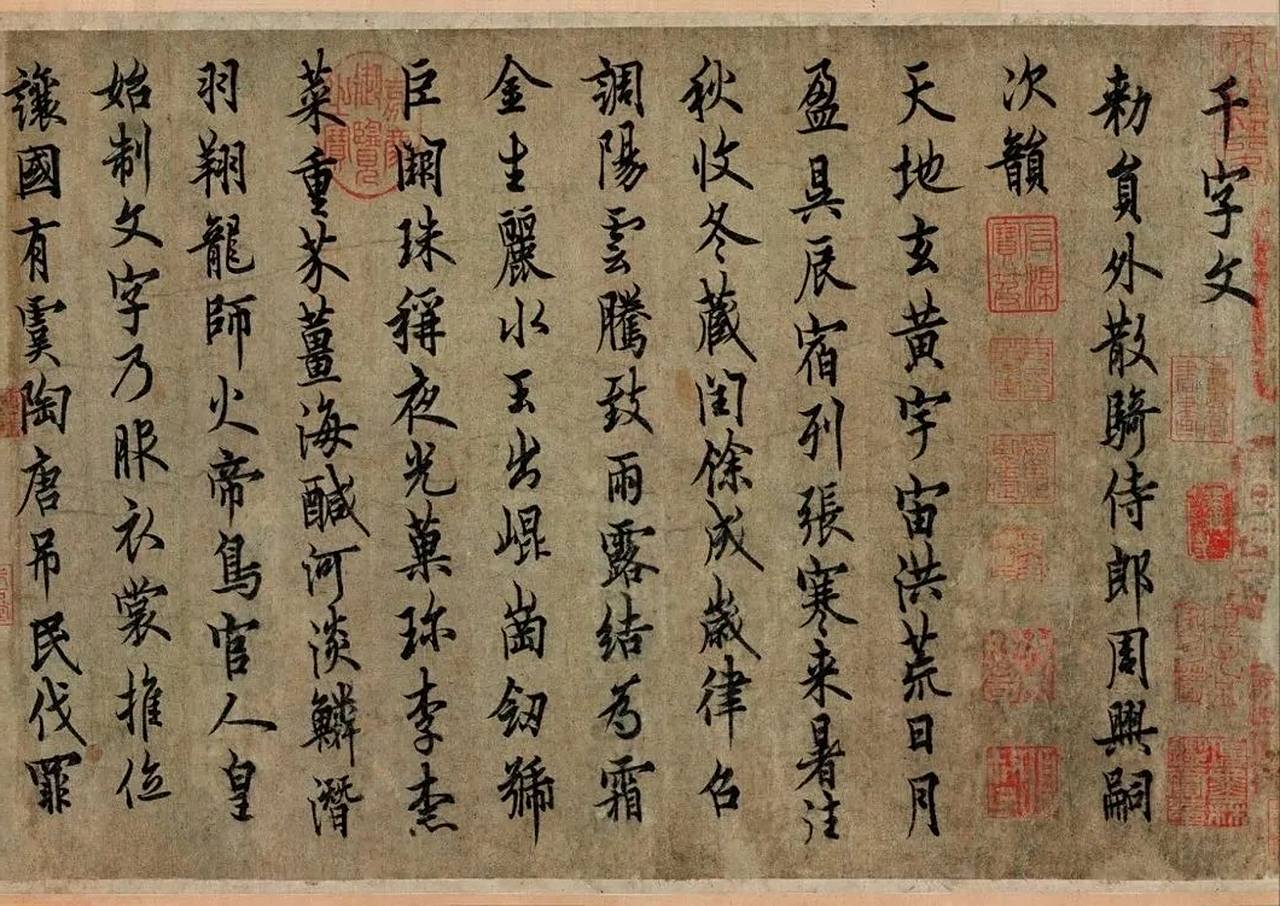 千字文
勅員外散騎侍郎周興嗣
次韻
天地玄黃宇宙洪荒日月
盈昃辰宿列張寒来暑往
秋收冬藏閏餘成歲律召
調陽雲騰致雨露結為霜
金生麗水玉出崐崗劒號
巨闕珠稱夜光菓珎李柰
菜重芥薑海醎河淡鱗潛
羽翔龍師火帝鳥官人皇
始制文字乃服衣裳推位
讓國有虞陶唐吊民伐罪